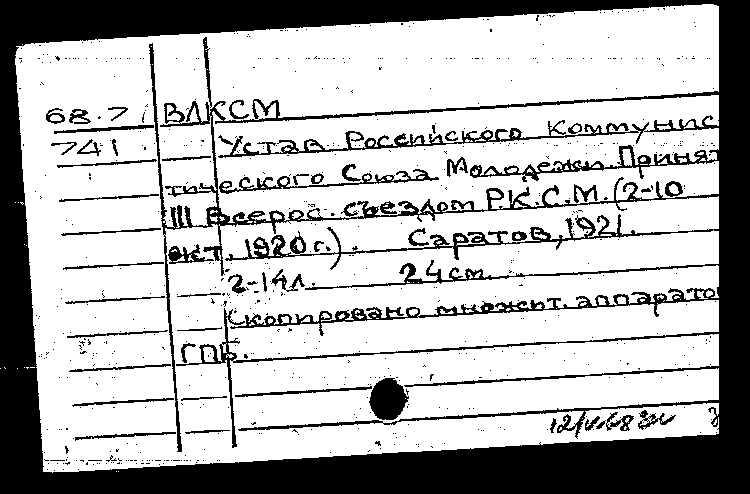 68.7 ВЛКСМ
741 Устав Российского Коммунис
тического Союза Молодежи. Принят
III Всерос. съездом Р.К.С.М. (2-10
окт. 1920 г.). Саратов, 1921.
2-14л. 24 см.
Скопировано множит. аппарато
ГПБ.